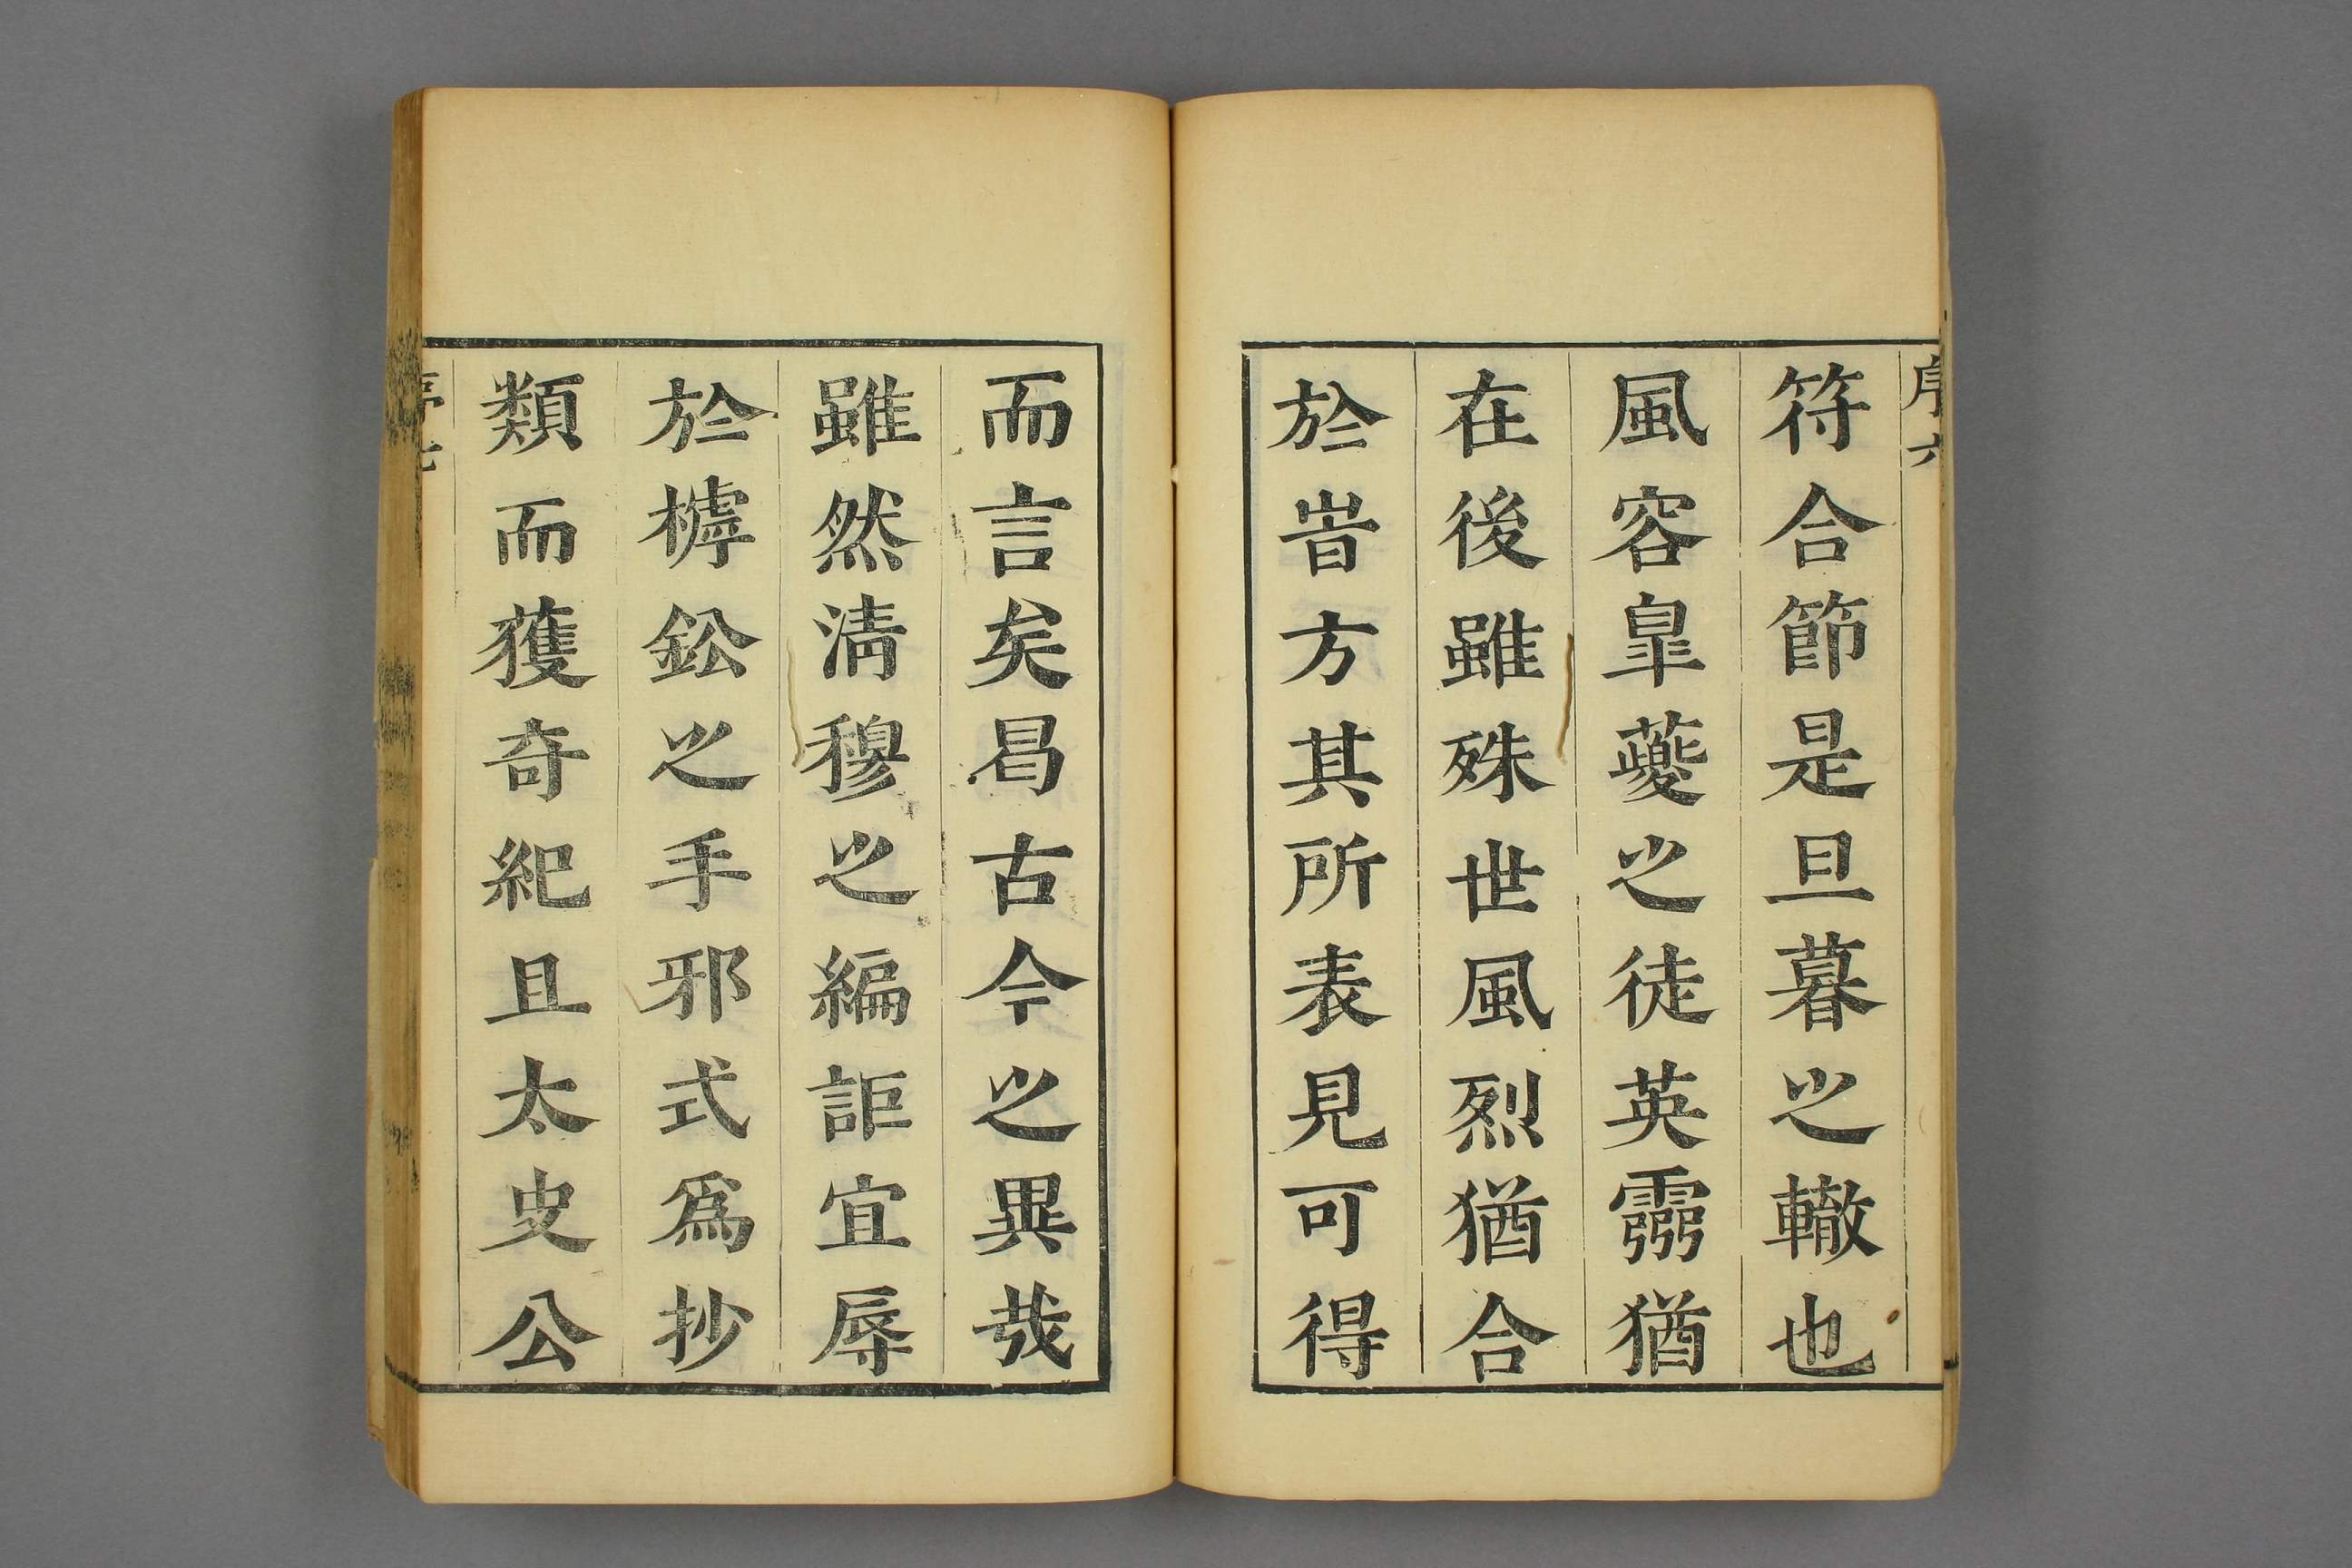 序六
符合節是旦暮之轍也
風容皐夔之徒英霛猶
在後雖殊世風烈猶合
於旹方其所表見可得
而言矣曷古今之異哉
雖然淸穆之編詎宜辱
於樗鈆之手邪式爲抄
類而獲奇紀且太史公
序七